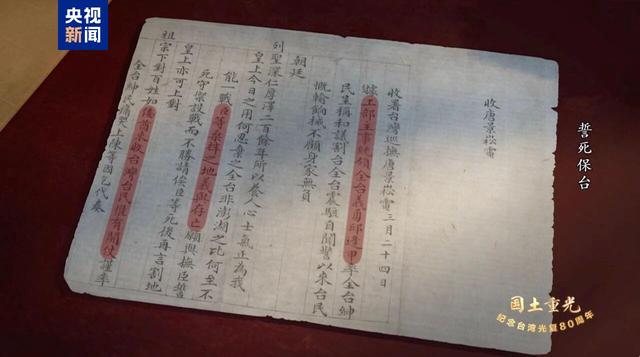 央视新闻
誓死保台
收唐景崧電
收署台灣巡撫唐景崧電三月二十四日
據工部主事統領全台義勇邱逢甲率全台紳
民呈稱和議割台全台震駭自聞警以來台民
慨輸餉械不顧身家無負
朝廷
列聖深仁厚澤二百餘年所以養人心士氣正為我
皇上今日之用何忍棄之全台非澎湖之比何至不
能一戰臣等桑梓之地義與存亡願與撫臣誓
死守禦設戰而不勝請俟臣等死後再言割地
皇上亦可上對
祖宗下對百姓如倭酋來收台灣台民惟有開仗謹率
全台紳民痛哭上陳等因乞代奏
国土重光
紀念台湾光复80周年